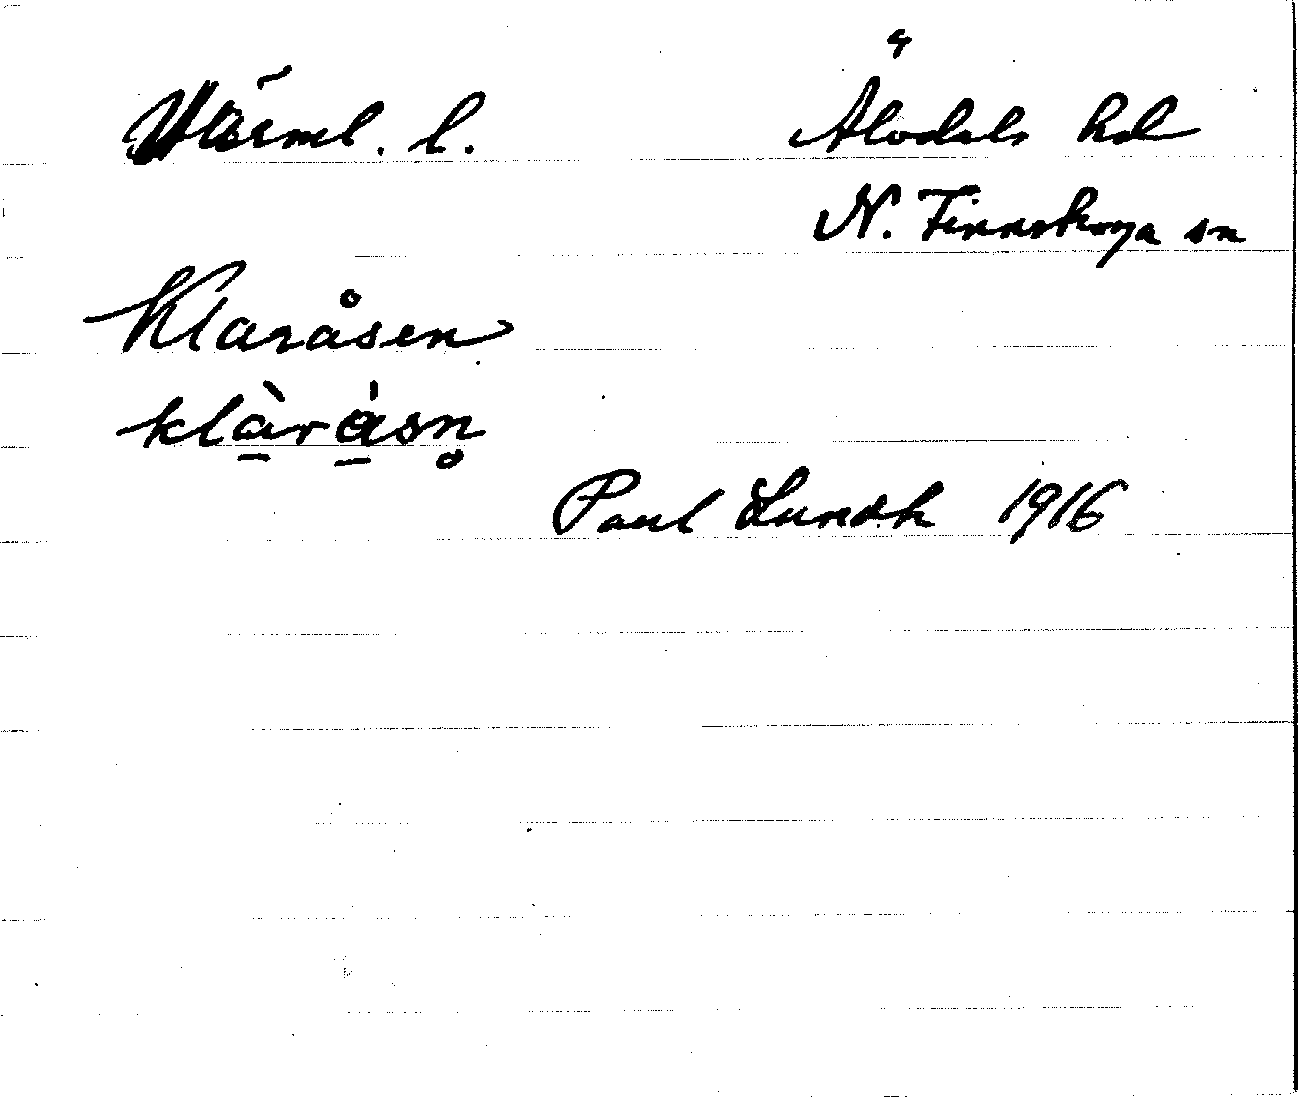 Värml. l. Älvdals hd
N. Finnskoga sn
Klaråsen
klà̠rá̠sn̥
Paul Lundh 1916